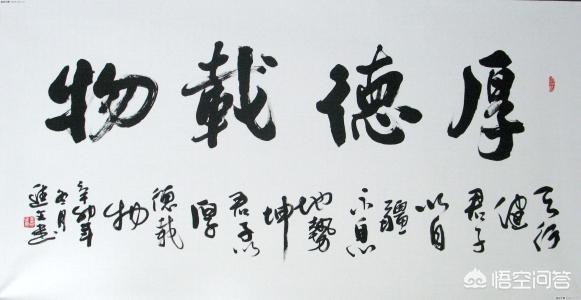 厚德載物
天行
健
君子
以自
疆
不息
地勢
坤
君子以
厚
德載
物
辛卯年
悟空问答